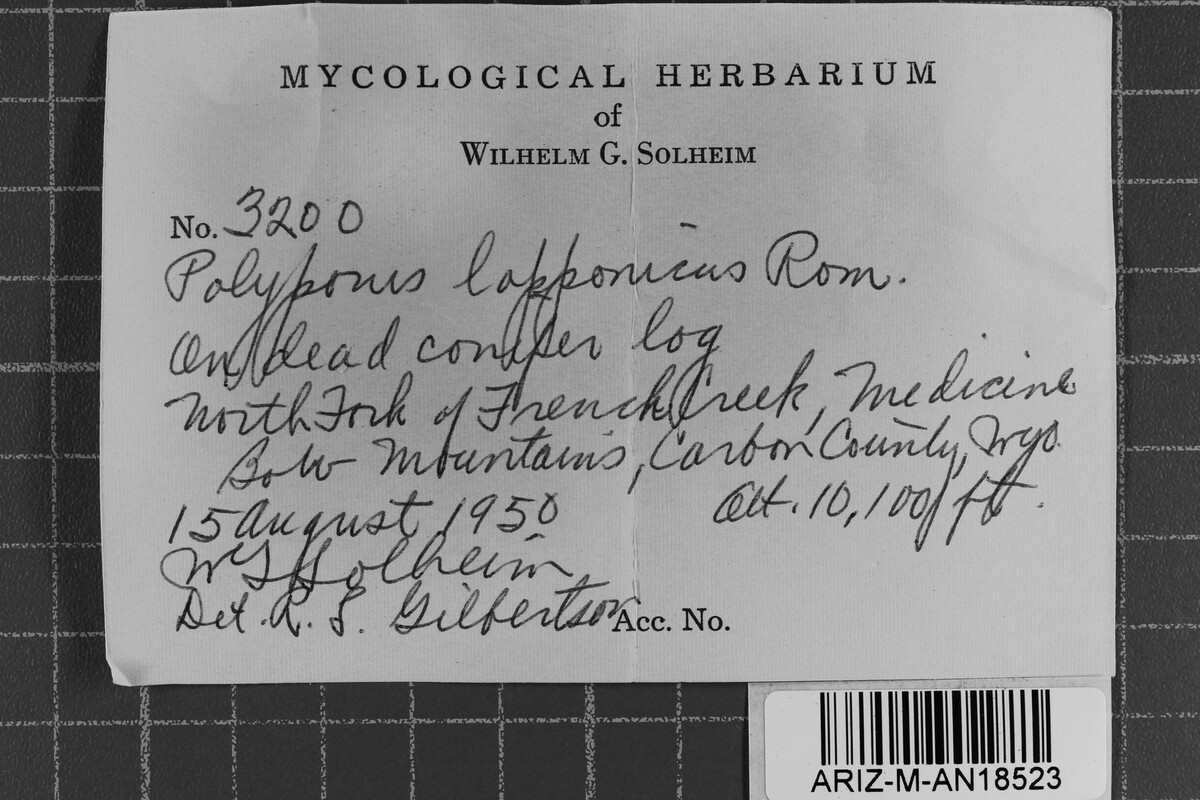 MYCOLOGICAL HERBARIUM
of
WILHELM G. SOLHEIM
No. 3200
Polyporus lapponicus Rom.
On dead conifer log
North Fork of French Creek, Medicine
Bow Mountains, Carbon County, Wyo.
15 August 1950 Alt. 10,100 ft.
W G Solheim
Det. R. L. Gilbertson Acc. No.
ARIZ-M-AN18523